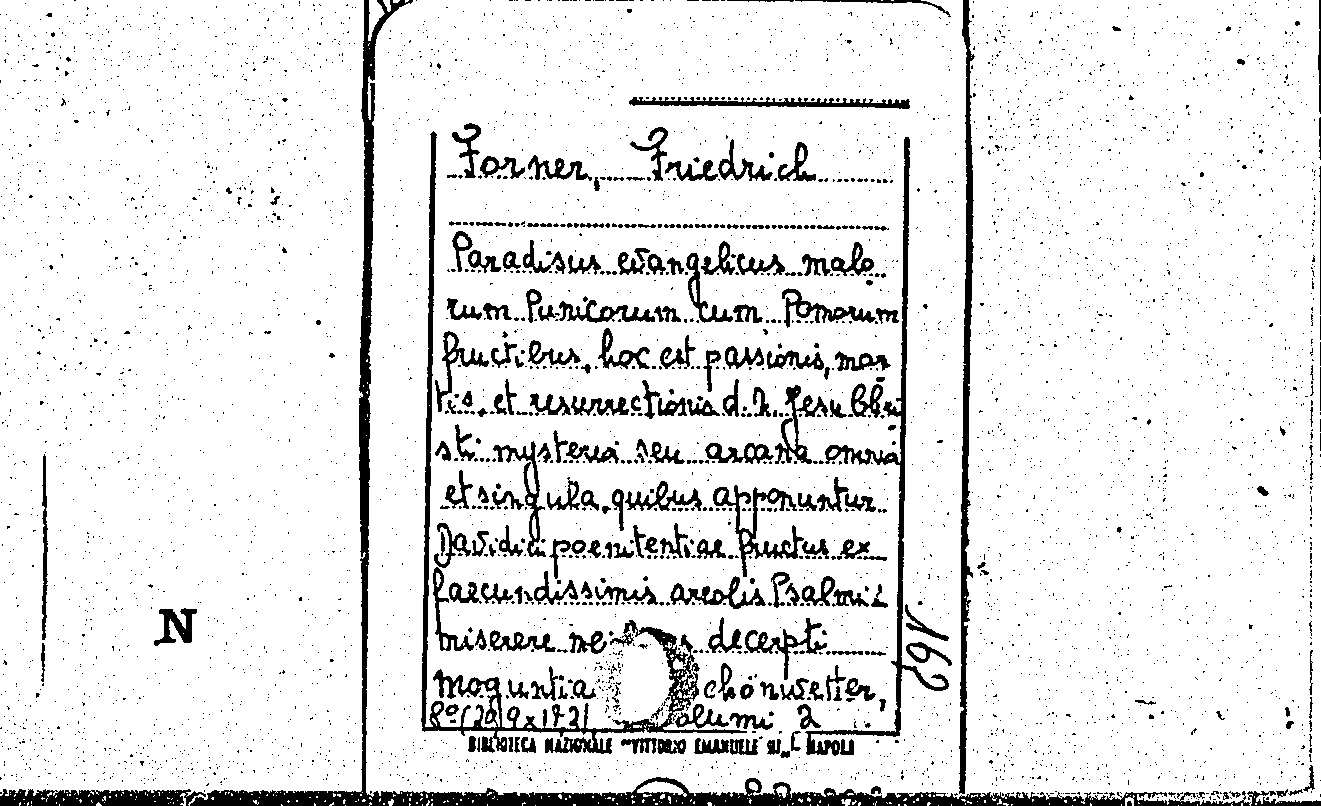 Forner, Friedrich
Paradisus evangelicus malo
rum Punicorum cum Pomorum
fructibus, hoc est passionis, mor
tis, et resurrectionis d. n. Jesu Chri
sti mysteria seu arcana omnia
et singula, quibus apponuntur
Davidici poenitentiae fructus ex
faecundissimis areolis Psalmi
miserere decerpti
moguntia chönwetter,
8º olumi 2
BIBLIOTECA NAZIONALE "VITTORIO EMANUELE III" NAPOLI
N
162